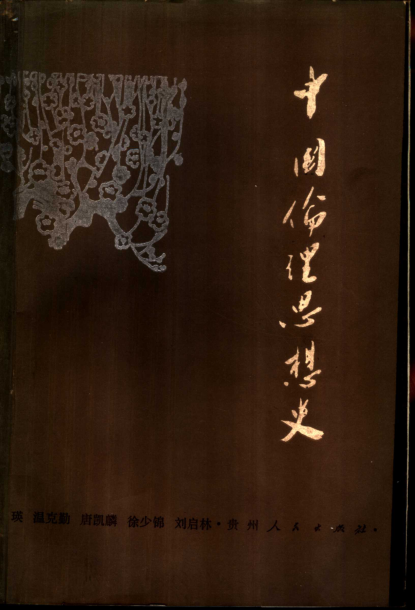 中國倫理思想史
瑛 温克勤 唐凯麟 徐少锦 刘启林·贵州人民出版社·